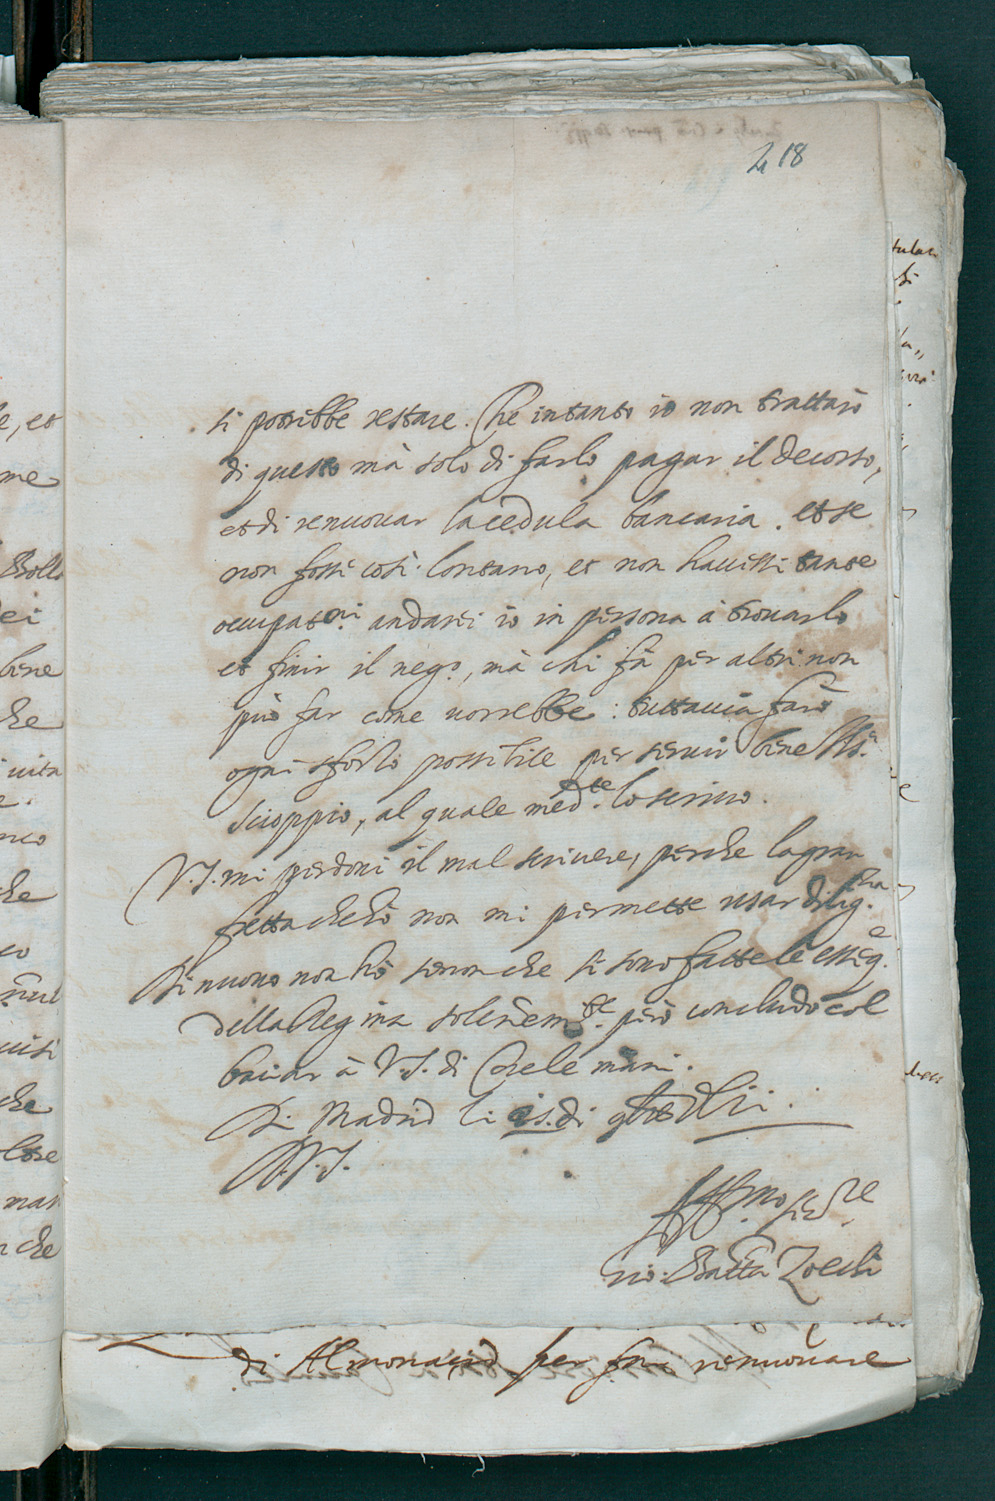 418
si potrebbe restare. Che intanto io non trattarò
di questo mà solo di farlo pagar il decorso,
et di renuovar la cedula bancaria. et se
non fossi così lontano, et non havessi tante
occupat.ni andarei io in persona à trovarlo
et finir il neg.o, mà chi fà per altri non
può far come vorrebbe: tuttavia farò
ogni sforzo possibile per servir bene
Scioppio, al quale med.te lo scrivo.
V.S. mi perdoni il mal scrivere, perche la gran
fretta che hò non mi permette usar dilig.tia
Di nuovo non hò senon che si sono fatte le esseq.e
della Regina solenem.te però concludo col
baciar à V.S. di Core le mani.
Di Madrid li 15. di
D.V.S.
Aff.mo ser.re
Gio: Batta Zocchi
di Almonacid per far renuovare